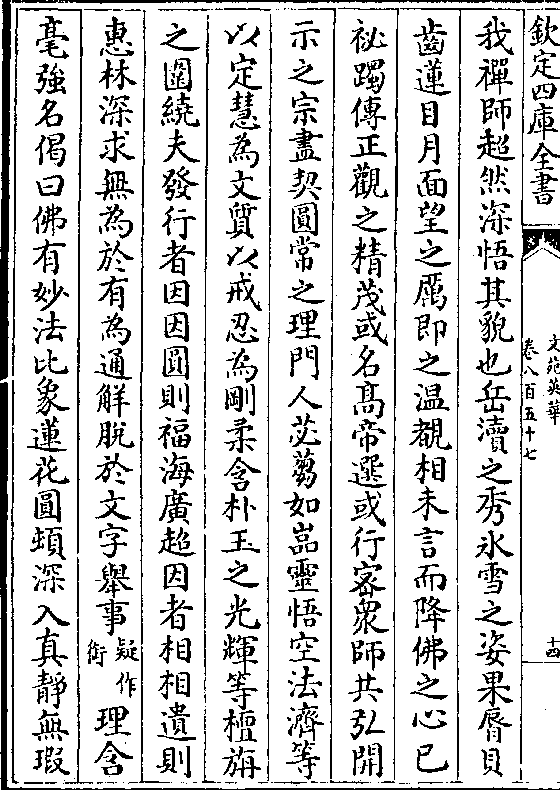 欽定四庫全書
文苑英華
卷八百五十七
十四
我禪師超然深悟其貌也岳瀆之秀氷雪之姿果脣貝
齒蓮目月面望之厲即之温覩相未言而降佛之心已
袐躅傳正觀之精茂或名髙帝選或行宻衆師共弘開
示之宗盡契圓常之理門人苾蒭如嵓靈悟空法濟等
以定慧為文質以戒忍為剛柔含朴玉之光輝等檀旃
之圍繞夫發行者因因圓則福海廣超因者相相遺則
惠林深求無為於有為通解脫於文字舉事疑作衘理含
毫強名偈曰佛有妙法比象蓮花圓頓深入真靜無瑕